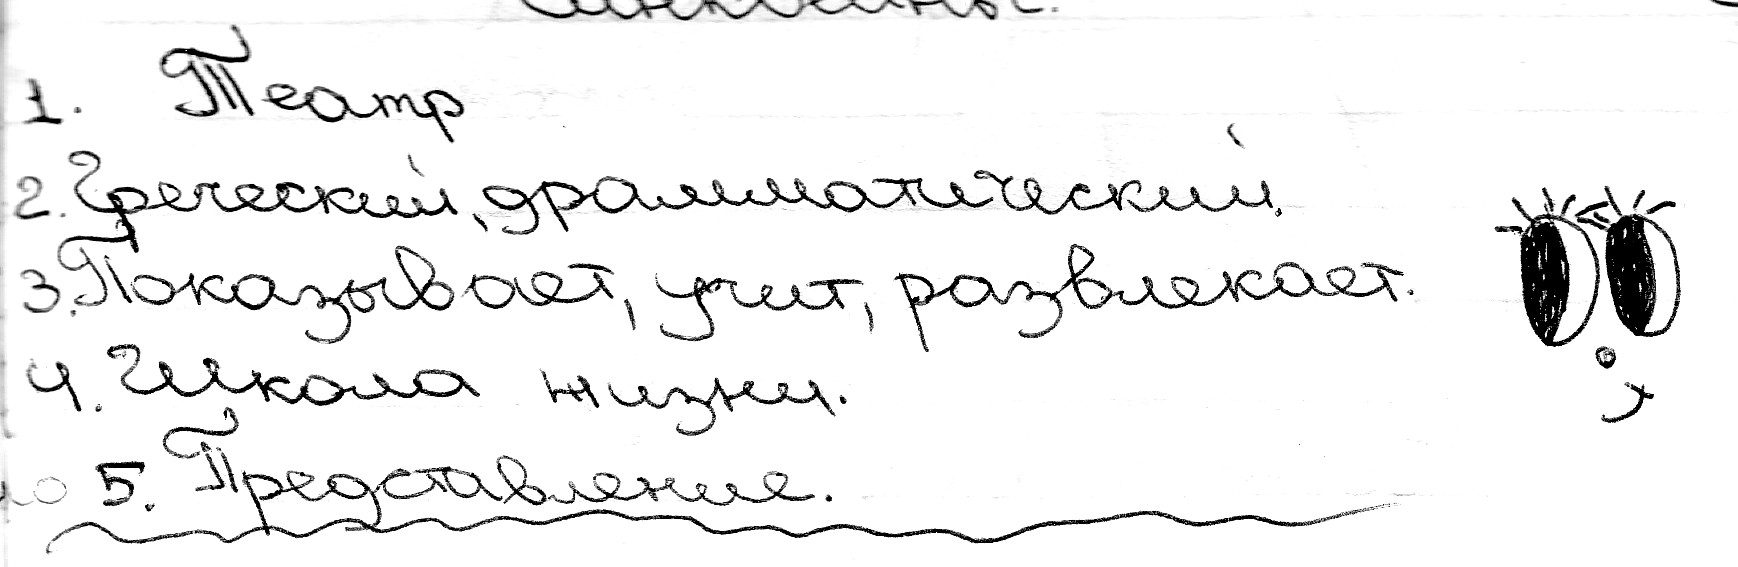 Синквейны.
1. Театр
2. Греческий, драмматический.
3. Показывает, учит, развлекает.
4. Школа жизни.
5. Представление.